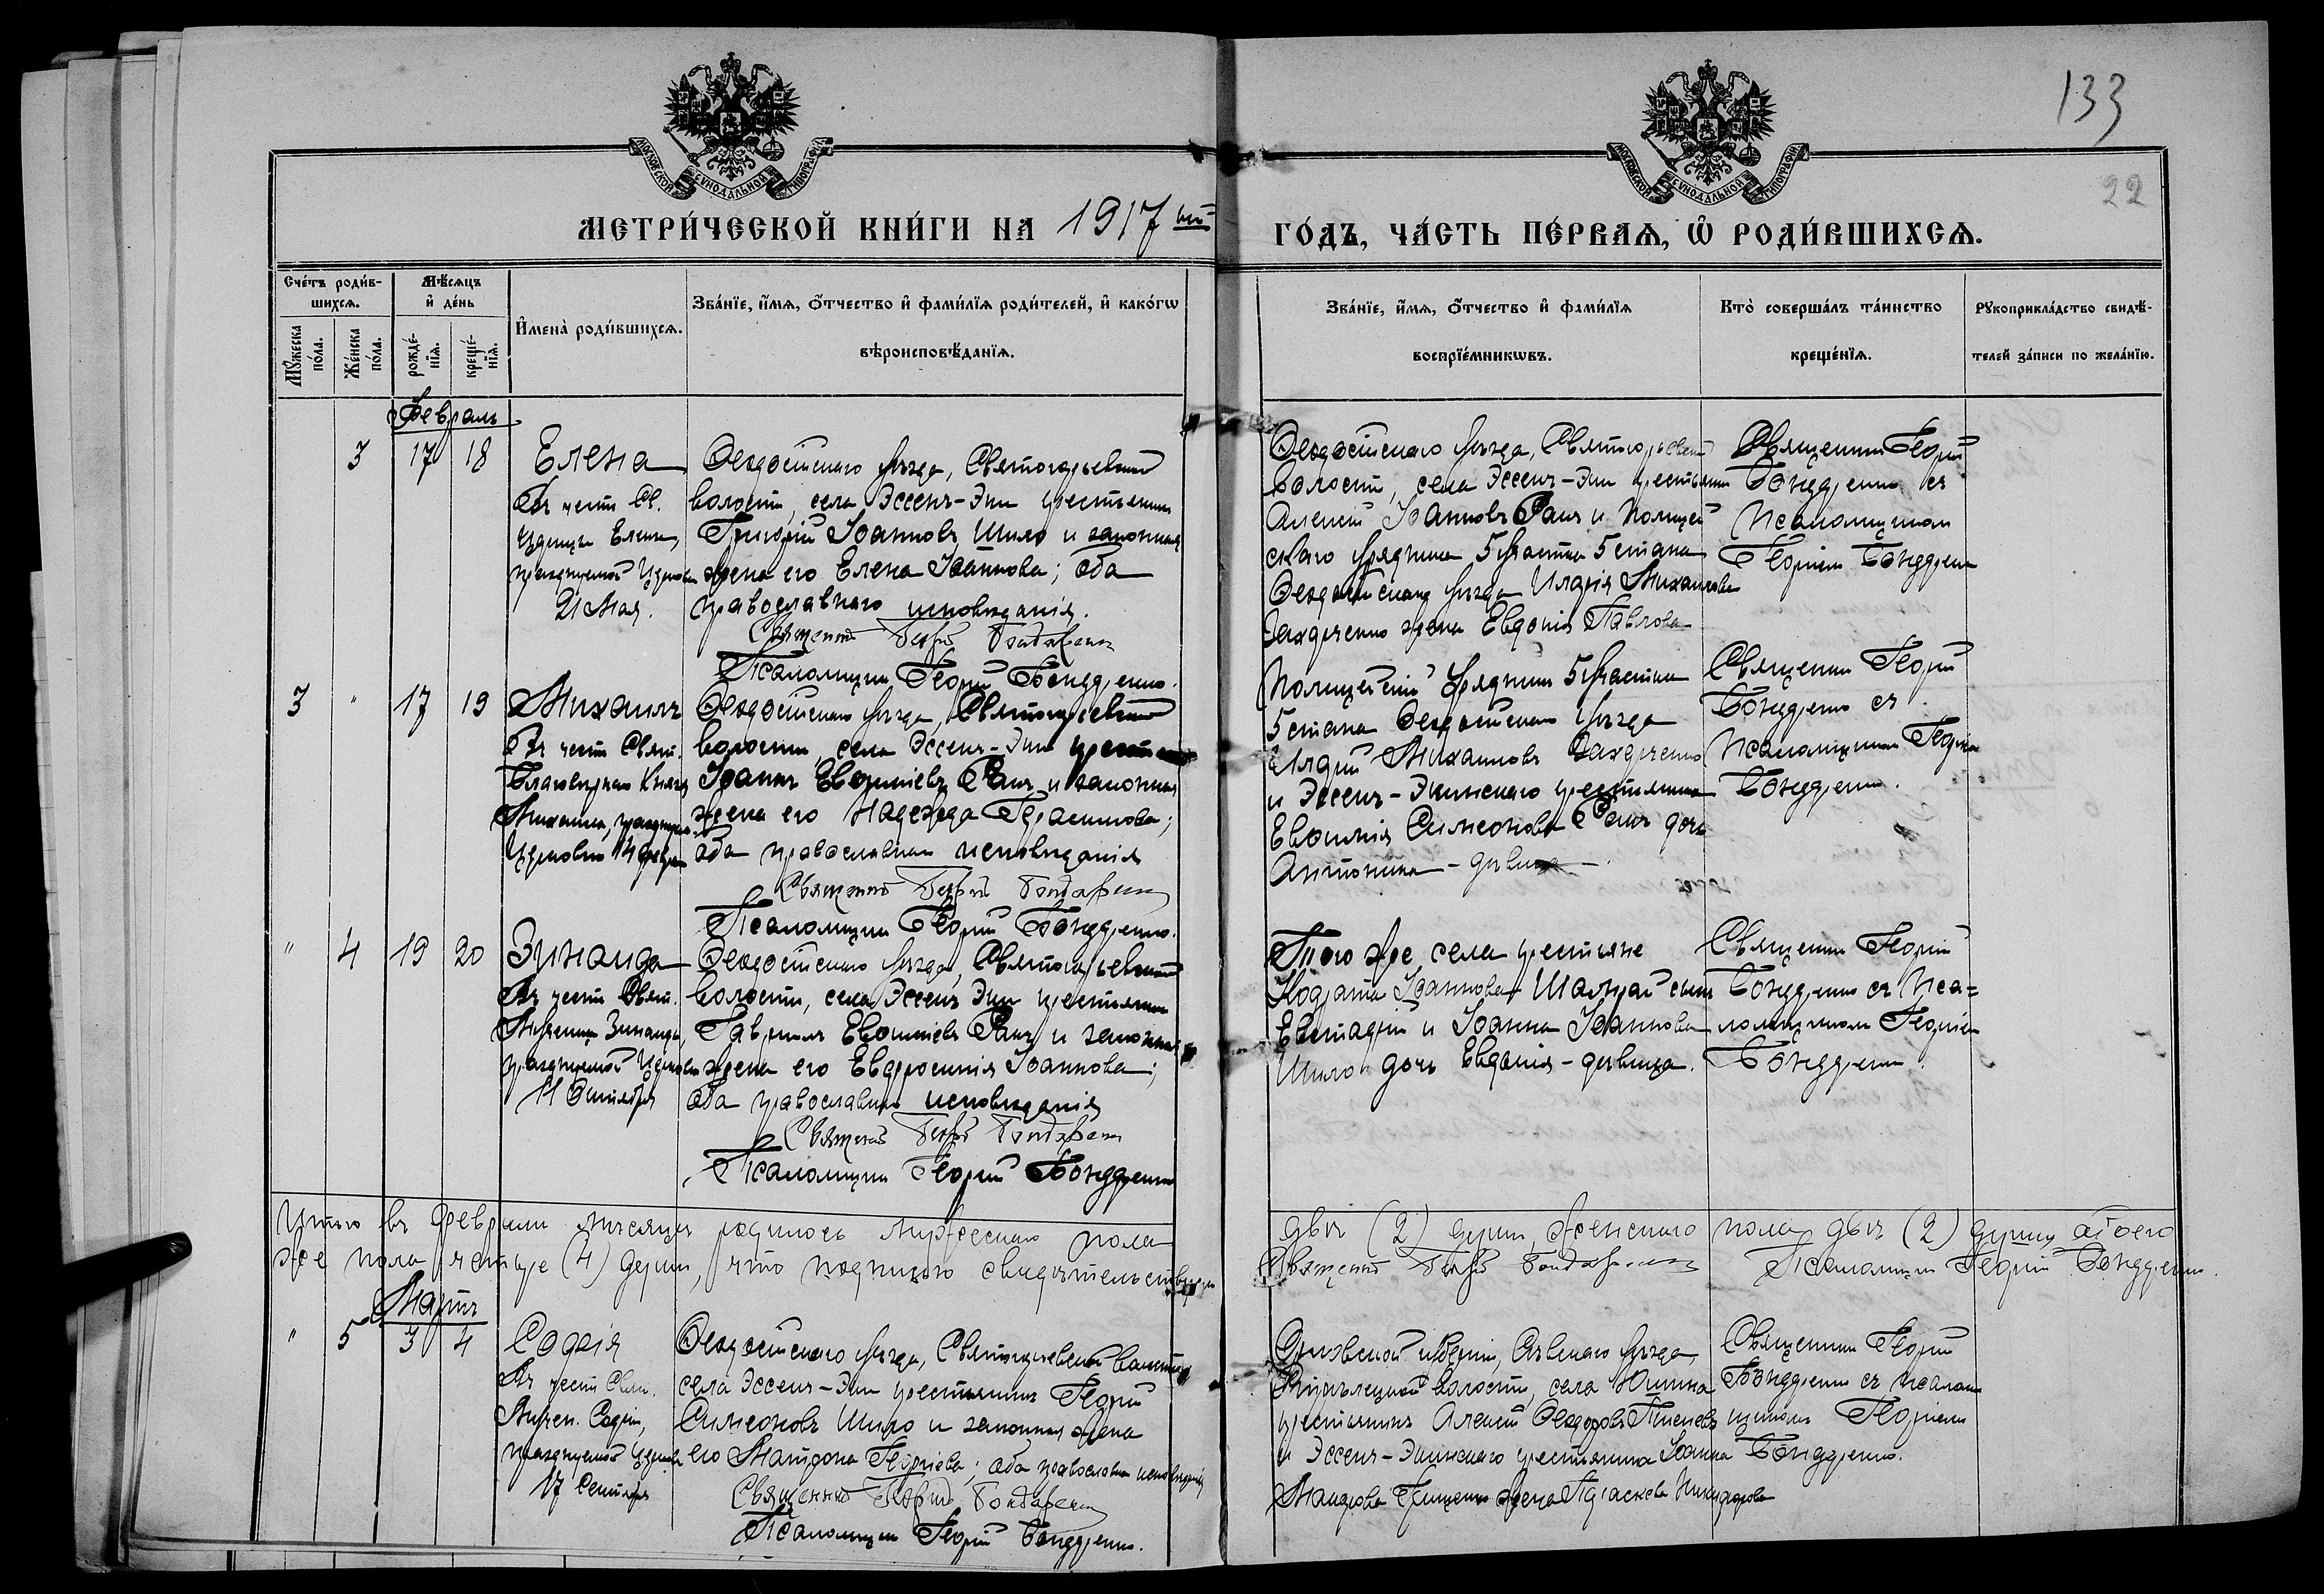 133
22
МОСКОВСКОЙ СѴНОДАЛЬНОЙ ТИПОГРАФІИ
МОСКОВСКОЙ СѴНОДАЛЬНОЙ ТИПОГРАФІИ
МЕТРИ́ЧЕСКОЙ КНИ́ГИ НА 1917 ый
ГО́ДЪ, ЧА́СТЬ ПЕ́РВАѦ, Ѡ҆ РОДИ́ВШИХСѦ.
Сче́тъ роди́в-
шихсѧ.
Мꙋ́жеска по́ла.
Же́нска по́ла.
Мѣ́сѧцъ
и҆ де́нь
рожде́-
нїѧ.
креще́-
нїѧ.
И҆мена̀ роди́вшихсѧ.
Зва́нїе, и҆́мѧ, ѻ҆́тчество и҆ фами́лїѧ роди́телей, и҆ како́гѡ
вѣроисповѣ́данїѧ.
Зва́нїе, и҆́мѧ, ѻ҆́тчество и҆ фами́лїѧ
воспрїе́мникѡвъ.
Кто̀ соверша́лъ та́инство
креще́нїѧ.
Рꙋкоприкла́дство свидѣ́-
телей за́писи по жела́нїю.
Февраль
3 17 18 Елена
Въ честь Св.
Царицы Елены,
празднуемой Церковью
21 Мая.
Ѳеодосійскаго уѣзда, Святогорьевской
волости, села Эссенъ-Эки крестьянинъ
Григорій Іоанновъ Шило и законная
жена его Елена Іоаннова; оба
православнаго исповѣданія.
Священникъ Георгій Бондаренко
Псаломщикъ Георгій Бондаренко.
Ѳеодосійскаго уѣзда, Святогорьевской
волости, села Эссенъ-Эки крестьянинъ
Алексій Іоанновъ Раки и Полицей
скаго Урядника 5 участка 5 стана
Ѳеодосійскаго уѣзда Иларія Михаилова
Захарченко жена Евдокія Павлова
Священникъ Георгій
Бондаренко съ
Псаломщикомъ
Георгіемъ Бондаренко
3 " 17 19 Михаилъ
Въ честь Свят.
Благовѣрнаго Князя
Михаила, празднуем.
Церковью 14 февраля
Ѳеодосійскаго уѣзда, Святогорьевской
волости, села Эссенъ-Эки крестьянинъ
Іоаннъ Евѳиміевъ и законная
жена его Надежда Герасимова;
оба православнаго исповѣданія
Священникъ Георгій Бондаренко
Псаломщикъ Георгій Бондаренко.
Полицейскій Урядникъ 5 участка
5 стана Ѳеодосійскаго уѣзда
Иларій Михаиловъ Захарченко
и Эссенъ-Экинскаго крестьянина
Евѳимія Симеонова дочь
Антонина - дѣвица.
Священникъ Георгій
Бондаренко съ
Псаломщикомъ Георгіемъ
Бондаренко.
" 4 19 20 Зинаида
Въ честь Свят.
Мученицы Зинаиды,
празднуемой Церковью
11 Октября
Ѳеодосійскаго уѣзда, Святогорьевской
волости, села Эссенъ Эки крестьянинъ
Гавріилъ Евѳиміевъ и законная
жена его Евфросинія Іоаннова;
оба православнаго исповѣданія
Священникъ Георгій Бондаренко
Псаломщикъ Георгій Бондаренко
Того же села крестьяне
Кодрата Іоаннова сынъ
Евстафій и Іоанна Іоаннова
Шило дочь Евдокія - дѣвица.
Священникъ Георгій
Бондаренко съ Пса=
ломщикомъ Георгіемъ
Бондаренко.
Итого въ Февралѣ мѣсяцѣ родилось Мужескаго пола двѣ (2) души, Женскаго пола двѣ (2) души, обоего
же пола четыре (4) души, что подписью свидѣтельствуемъ Священникъ Георгій Бондаренко Псаломщикъ Георгій Бондаренко.
Мартъ
" 5 3 4 Софія
Въ честь Свят.
Мучен. Софіи,
празднуемой Церковью
17 Сентября
Ѳеодосійскаго уѣзда, Святогорьевской волости
села Эссенъ-Эки крестьянинъ Георгій
Симеоновъ Шило и законная жена
его Матрона Георгіева; оба православнаго исповѣданія
Священникъ Георгій Бондаренко
Псаломщикъ Георгій Бондаренко.
Орловской губерніи, Сѣвскаго уѣзда,
волости, села Юшина
крестьянинъ Алексій Ѳеодоровъ
и Эссенъ-Экинскаго крестьянина Іоанна
Гриценко жена
Священникъ Георгій
Бондаренко съ псалом
щикомъ Георгіемъ
Бондаренко.